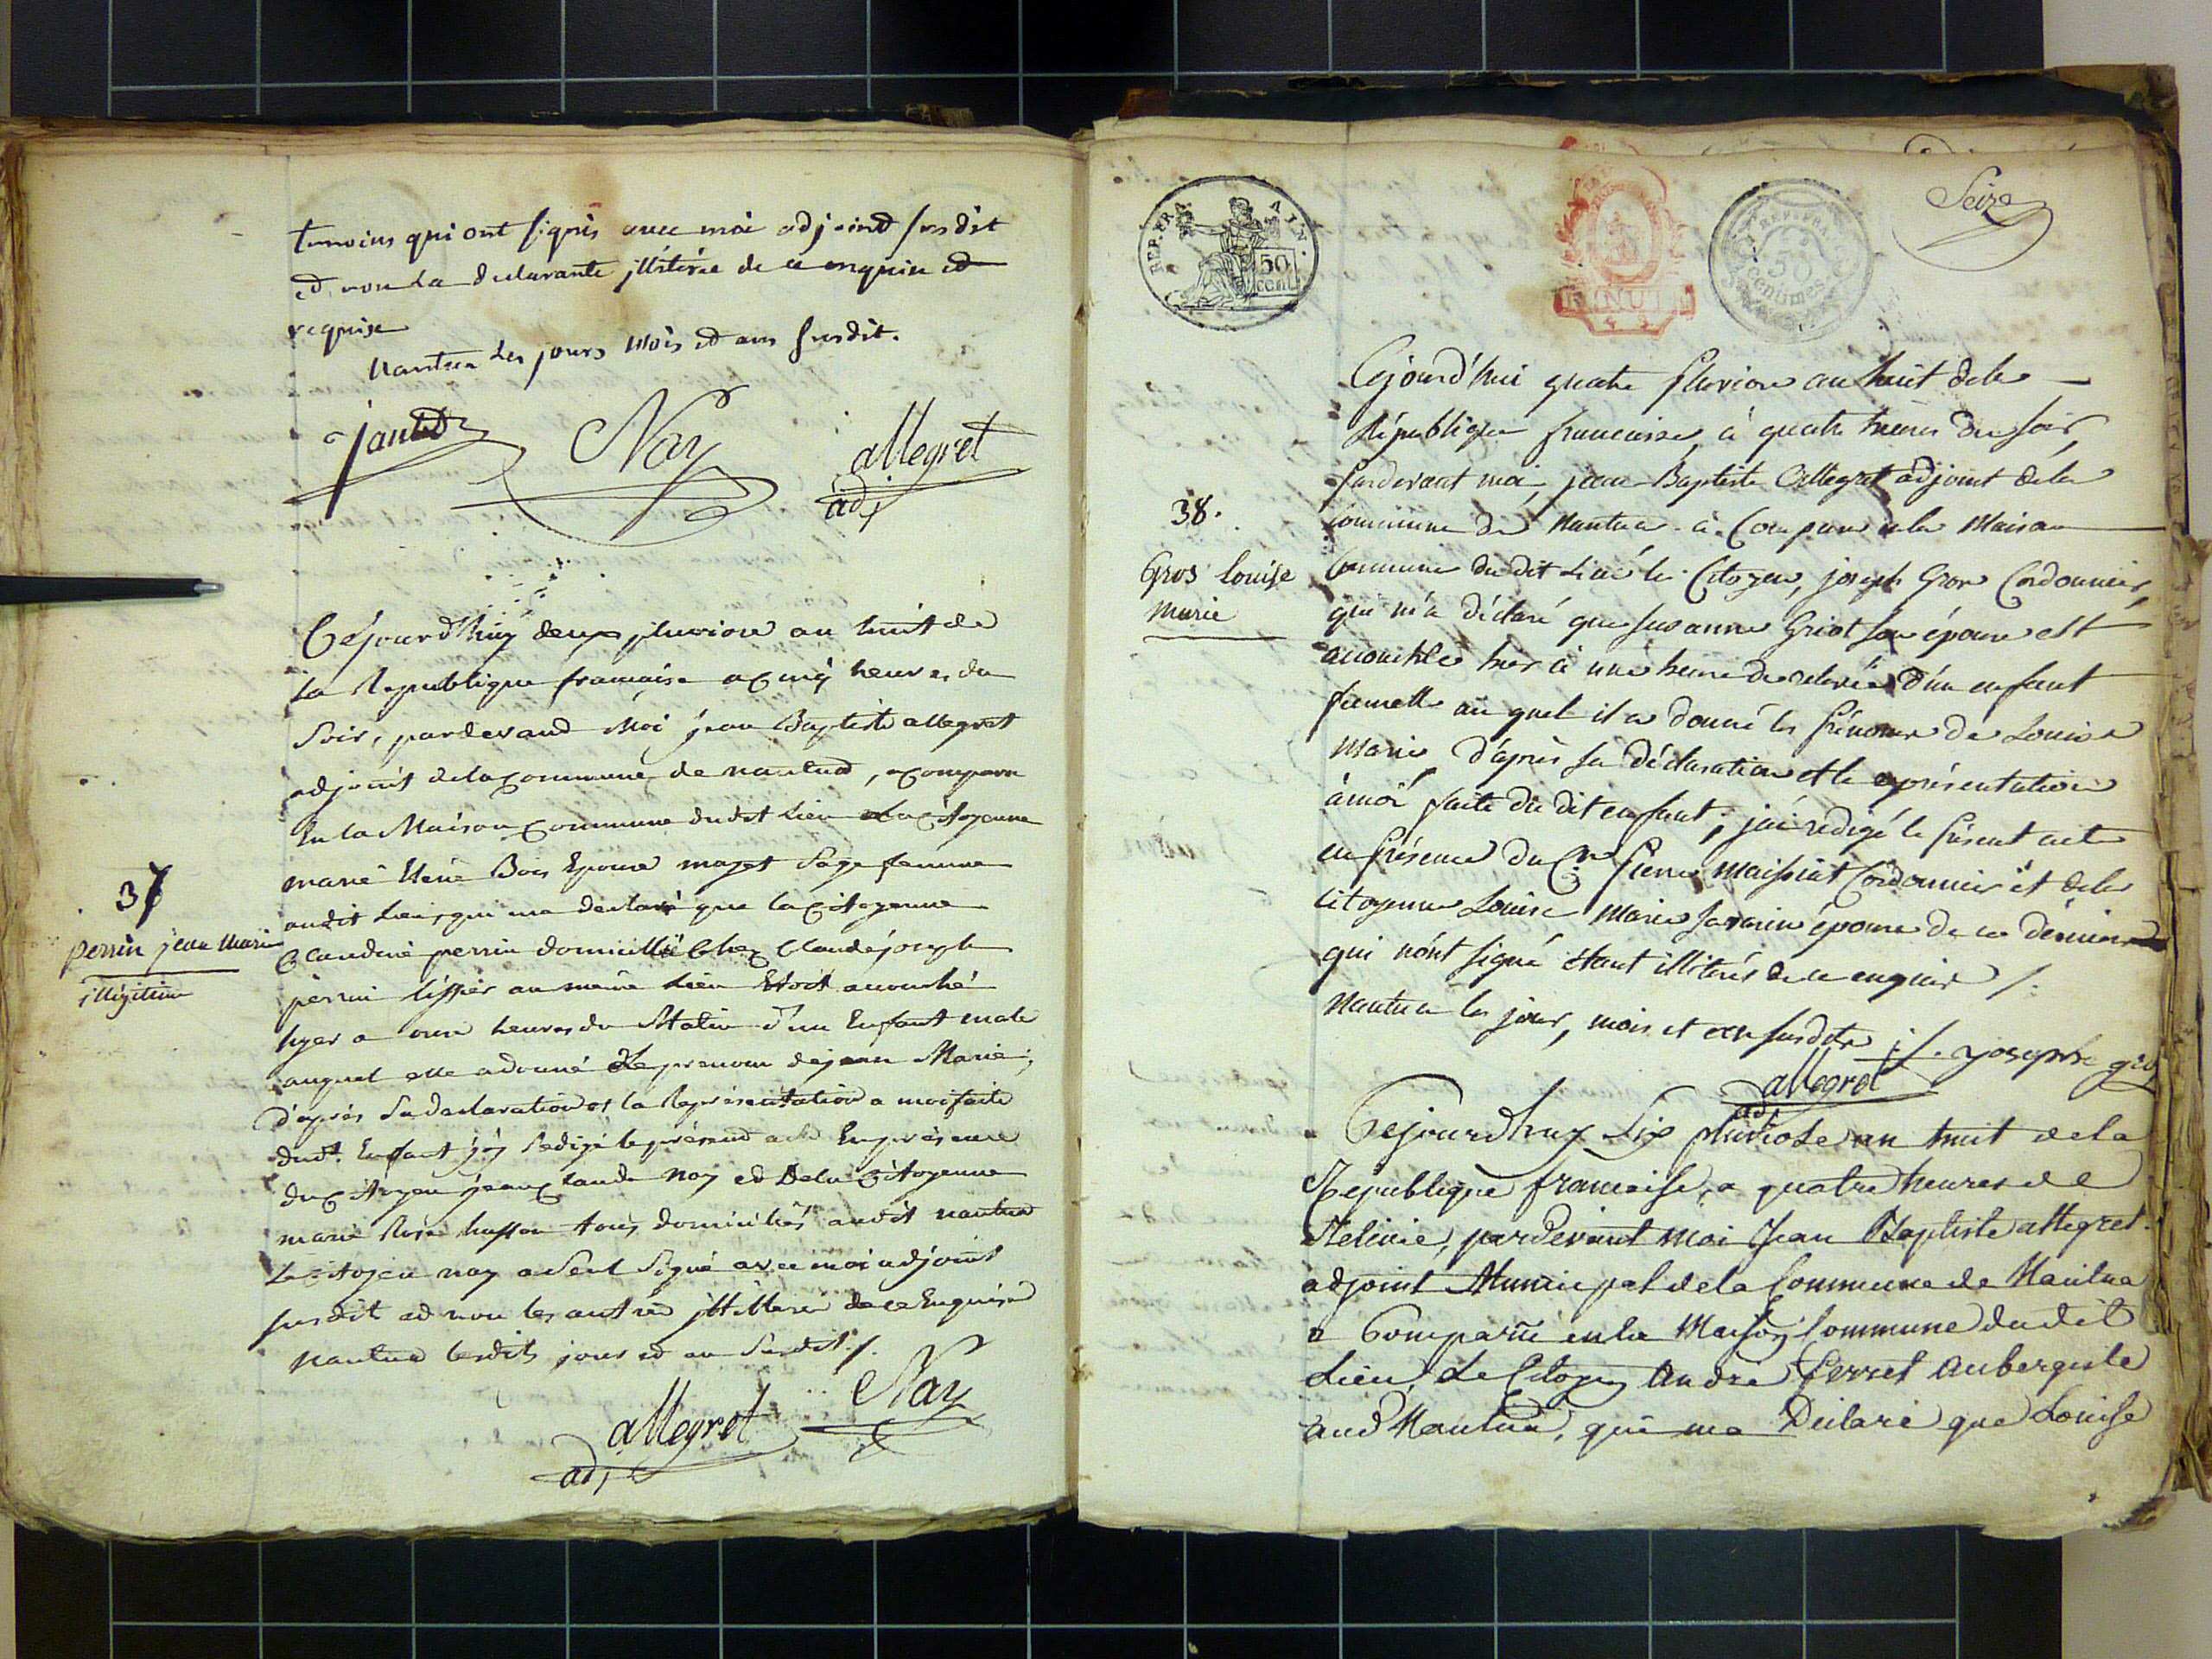 temoins qui ont signés avec moi adjoint susdit
et non la declarante illiterée de ce enquise et
requise
Nantua les jours mois et an susdit.
jantet Nay allegret
adj
Cejourd'huy deux pluviose an huit de
la Republique francaise a cinq heures du
Soir, pardevand Moi jean Baptiste allegret
adjoint de la commune de nantua, a comparu
En la Maison commune dudit Lieu La Citoyenne
marie Bois Epouse mazet Sage femme
audit Lieu, qui ma declaré que la Citoyenne
Claudine perrin domiciliée Chez Claude joseph
perrin au meme Lieu Etoit accouché
hyer a onze heures du Matin d'un Enfant male
auquel elle a donné Le prenom de jean Marie;
d'après Sa declaration et la Representation a moi faite
dudt. Enfant j'ay Redigé le présend acte En présence
du Citoyen jean Claude Nay et De la Citoyenne
marie Rose husson tous domiciliés audit nantua
Le Citoyen nay a Seul Signé avec moi adjoint
susdit et non les autres de ce Enquise
Nantua lesdits jour et an Susdit ./.
allegret Nay
adj
37
perrin jean Marie
illégitime
REP. FRA. AIN.
50
cent.
REP. FRA.
50
Centimes
Seize
Cejourd'hui quatre pluviose an huit de la
République francaise, à quatre heures du soir,
pardevant moi, jean-Baptiste Allegret adjoint de la
commune de Nantua à Comparu à la Maison
Commune du dit Lieu le Citoyen, joseph Gros Cordonnier,
qui m'a déclaré que susanne Griot son épouse est
accouchée hier à une heure de relevée d'un enfant
femelle au quel il a donné les prénoms de Louise
Marie d'après sa déclaration et la représentation
à moi faite du dit enfant, j'ai redigé le présent acte
en présence du Cn. Pierre Maissiat Cordonnier et de la
citoyenne Louise Marie Savarin épouse de ce dernier
qui n'ont signé étant illitérés de ce enquis /.
Nantua les jour, mois et an susdits ./. yosephe gro
allegret
adj
38.
Gros Louise
Marie
Cejourdhuy Six pluviose an huit de la
République francoise, a quatre heures de
Relevée, pardevant moi Jean Baptiste allegret.
adjoint Municipal de la Commune de Nantua
a Comparu en la Maison Commune dudit
Lieu, Le Citoyen Andre ferret Aubergiste
aud Nantua, qui ma Déclaré que Louise